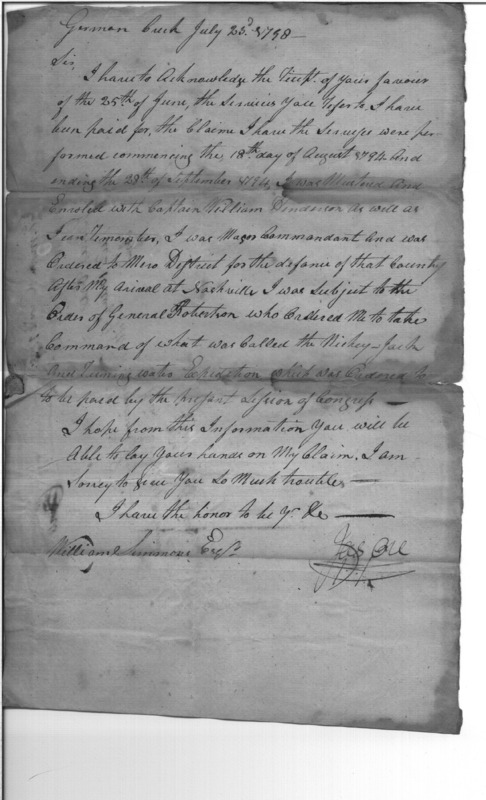 German Creek July 23d 1798 —
Sir
I have to Acknowledge the Receipt. of your favour
of the 25th of June, the Services you refer to I have
been paid for, the Claim I have the Services were per
formed commencing the 18th day of August 1794 And
ending the 28th of September 1794, I was Mustered And
Enroled with Captain William Henderson as well as
I can Remember, I was Major Commandant And was
Ordered to Mero District for the defence of that Country
After My arival at Nashville I was Subject to the
Order of General Robertson who Ordered Me to take
Command of what was Called the Nickey-Jack
And Running water Expedition which was Ordered to
to be paid by the Present Session of Congress —
I hope from this Information You will be
Able to lay Your hands on My Claim, I am
Sorrey to Give You So Much trouble —
I have the honor to be Yr &c —
William Simmons Esqr.
Jas Ore